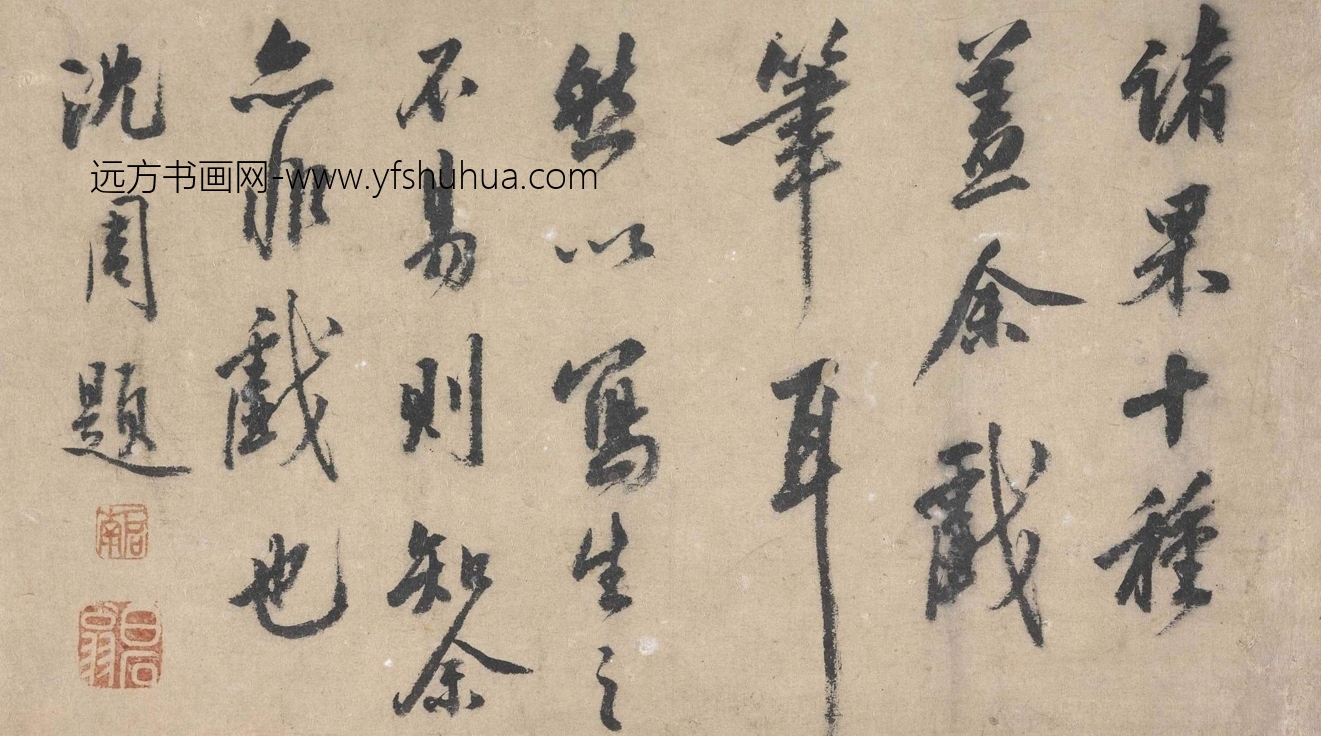 诸果十種
盖余戲
筆耳
然以寫生之
不易則知余
亦非戲也
沈周題
远方书画网-www.yfshuhua.com
啟南
石田